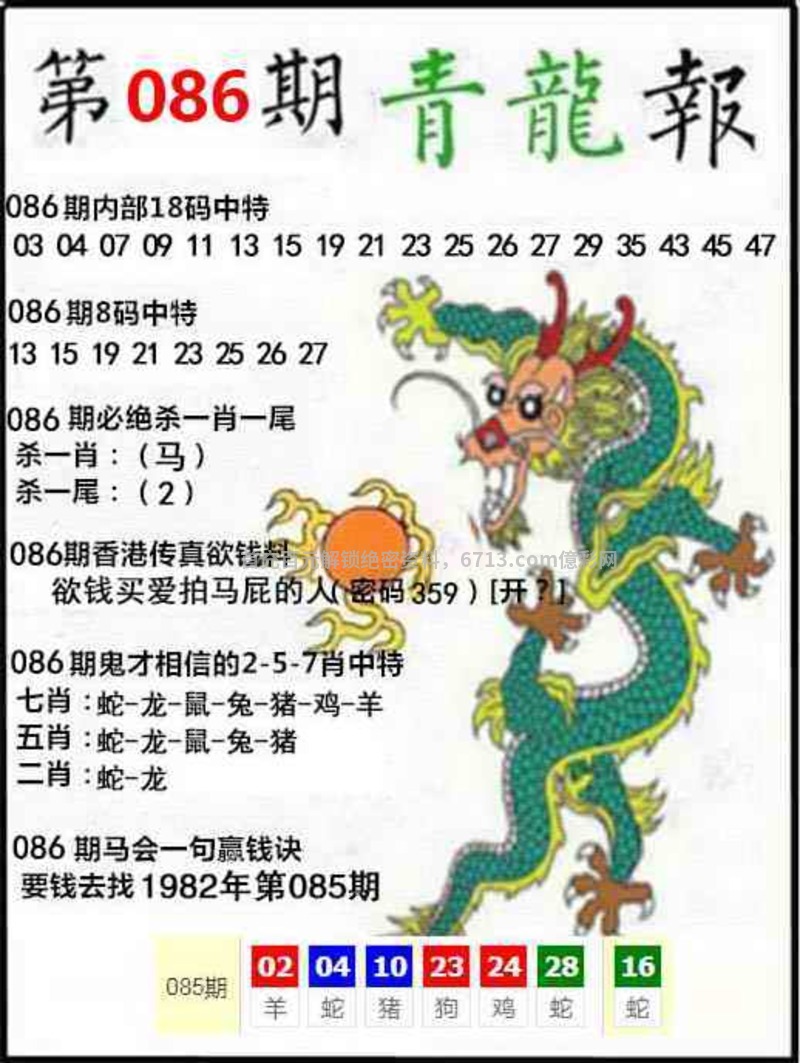 第086期青龍報
086期内部18码中特
03 04 07 09 11 13 15 19 21 23 25 26 27 29 35 43 45 47
086期8码中特
13 15 19 21 23 25 26 27
086期必绝杀一肖一尾
杀一肖：（马）
杀一尾：（2）
086期香港传真欲钱料
解锁绝密资料，6713.com億彩网
欲钱买爱拍马屁的人（密码359）[开？]
086期鬼才相信的2-5-7肖中特
七肖：蛇-龙-鼠-兔-猪-鸡-羊
五肖：蛇-龙-鼠-兔-猪
二肖：蛇-龙
086期马会一句赢钱诀
要钱去找1982年第085期
085期 02 04 10 23 24 28 16
羊 蛇 猪 狗 鸡 蛇 蛇